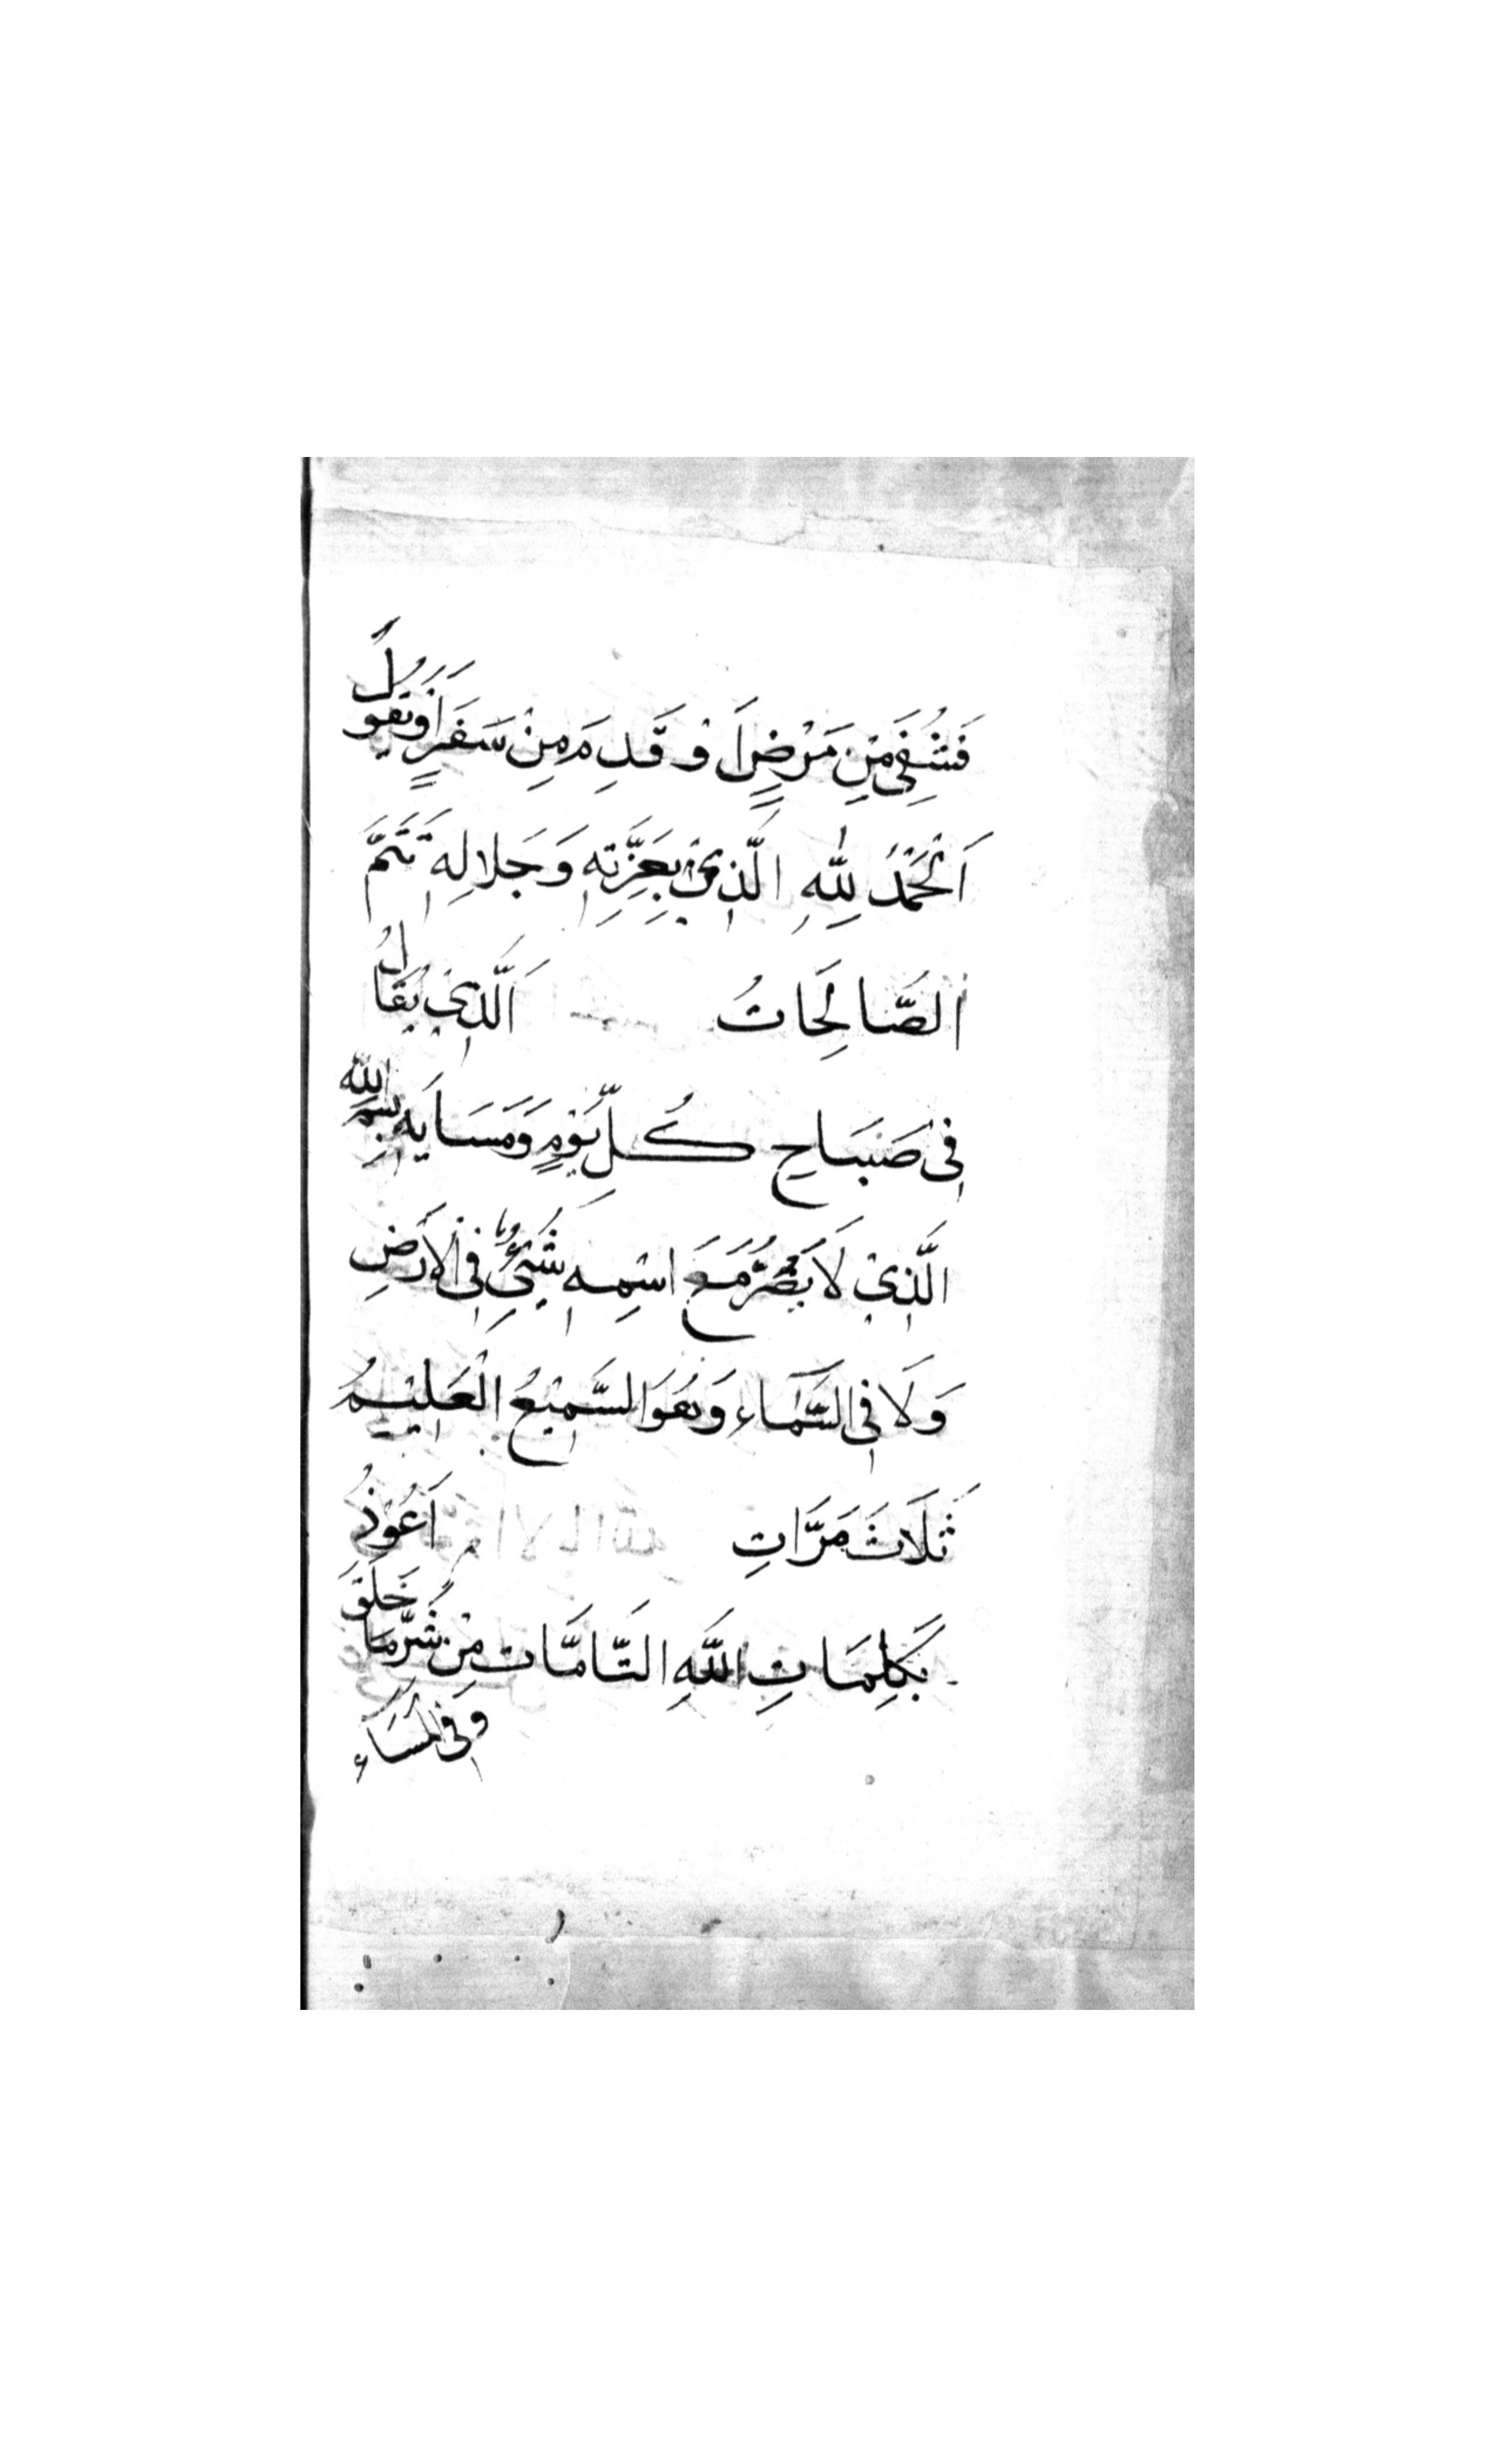 فَشُفِيَ مِنْ مَرَضٍ اَوْ قَدِمَ مِنْ سَفَرٍ اَوْ يَقُولُ
اَلْحَمْدُ لِلّٰهِ الَّذِيْ بِعِزَّتِهِ وَجَلَالِهِ تَتَمَّ
الصَّالِحَاتُ اَلَّذِيْ يُقَالُ
فِيْ صَبَاحِ كُلِّ يَوْمٍ وَمَسَايِهِ بِسْمِ اللّٰهِ
الَّذِيْ لَا يَضُرُّ مَعَ اسْمِهِ شَيْئٌ فِي الْاَرْضِ
وَلَا فِي السَّمَاءِ وَهُوَ السَّمِيْعُ الْعَلِيْمُ
ثَلَاثَ مَرَّاتٍ اَعُوْذُ
بِكَلِمَاتِ اللّٰهِ التَّامَّاتِ مِنْ شَرِّ مَا خَلَقَ
وَفِي الْمَسَاءِ